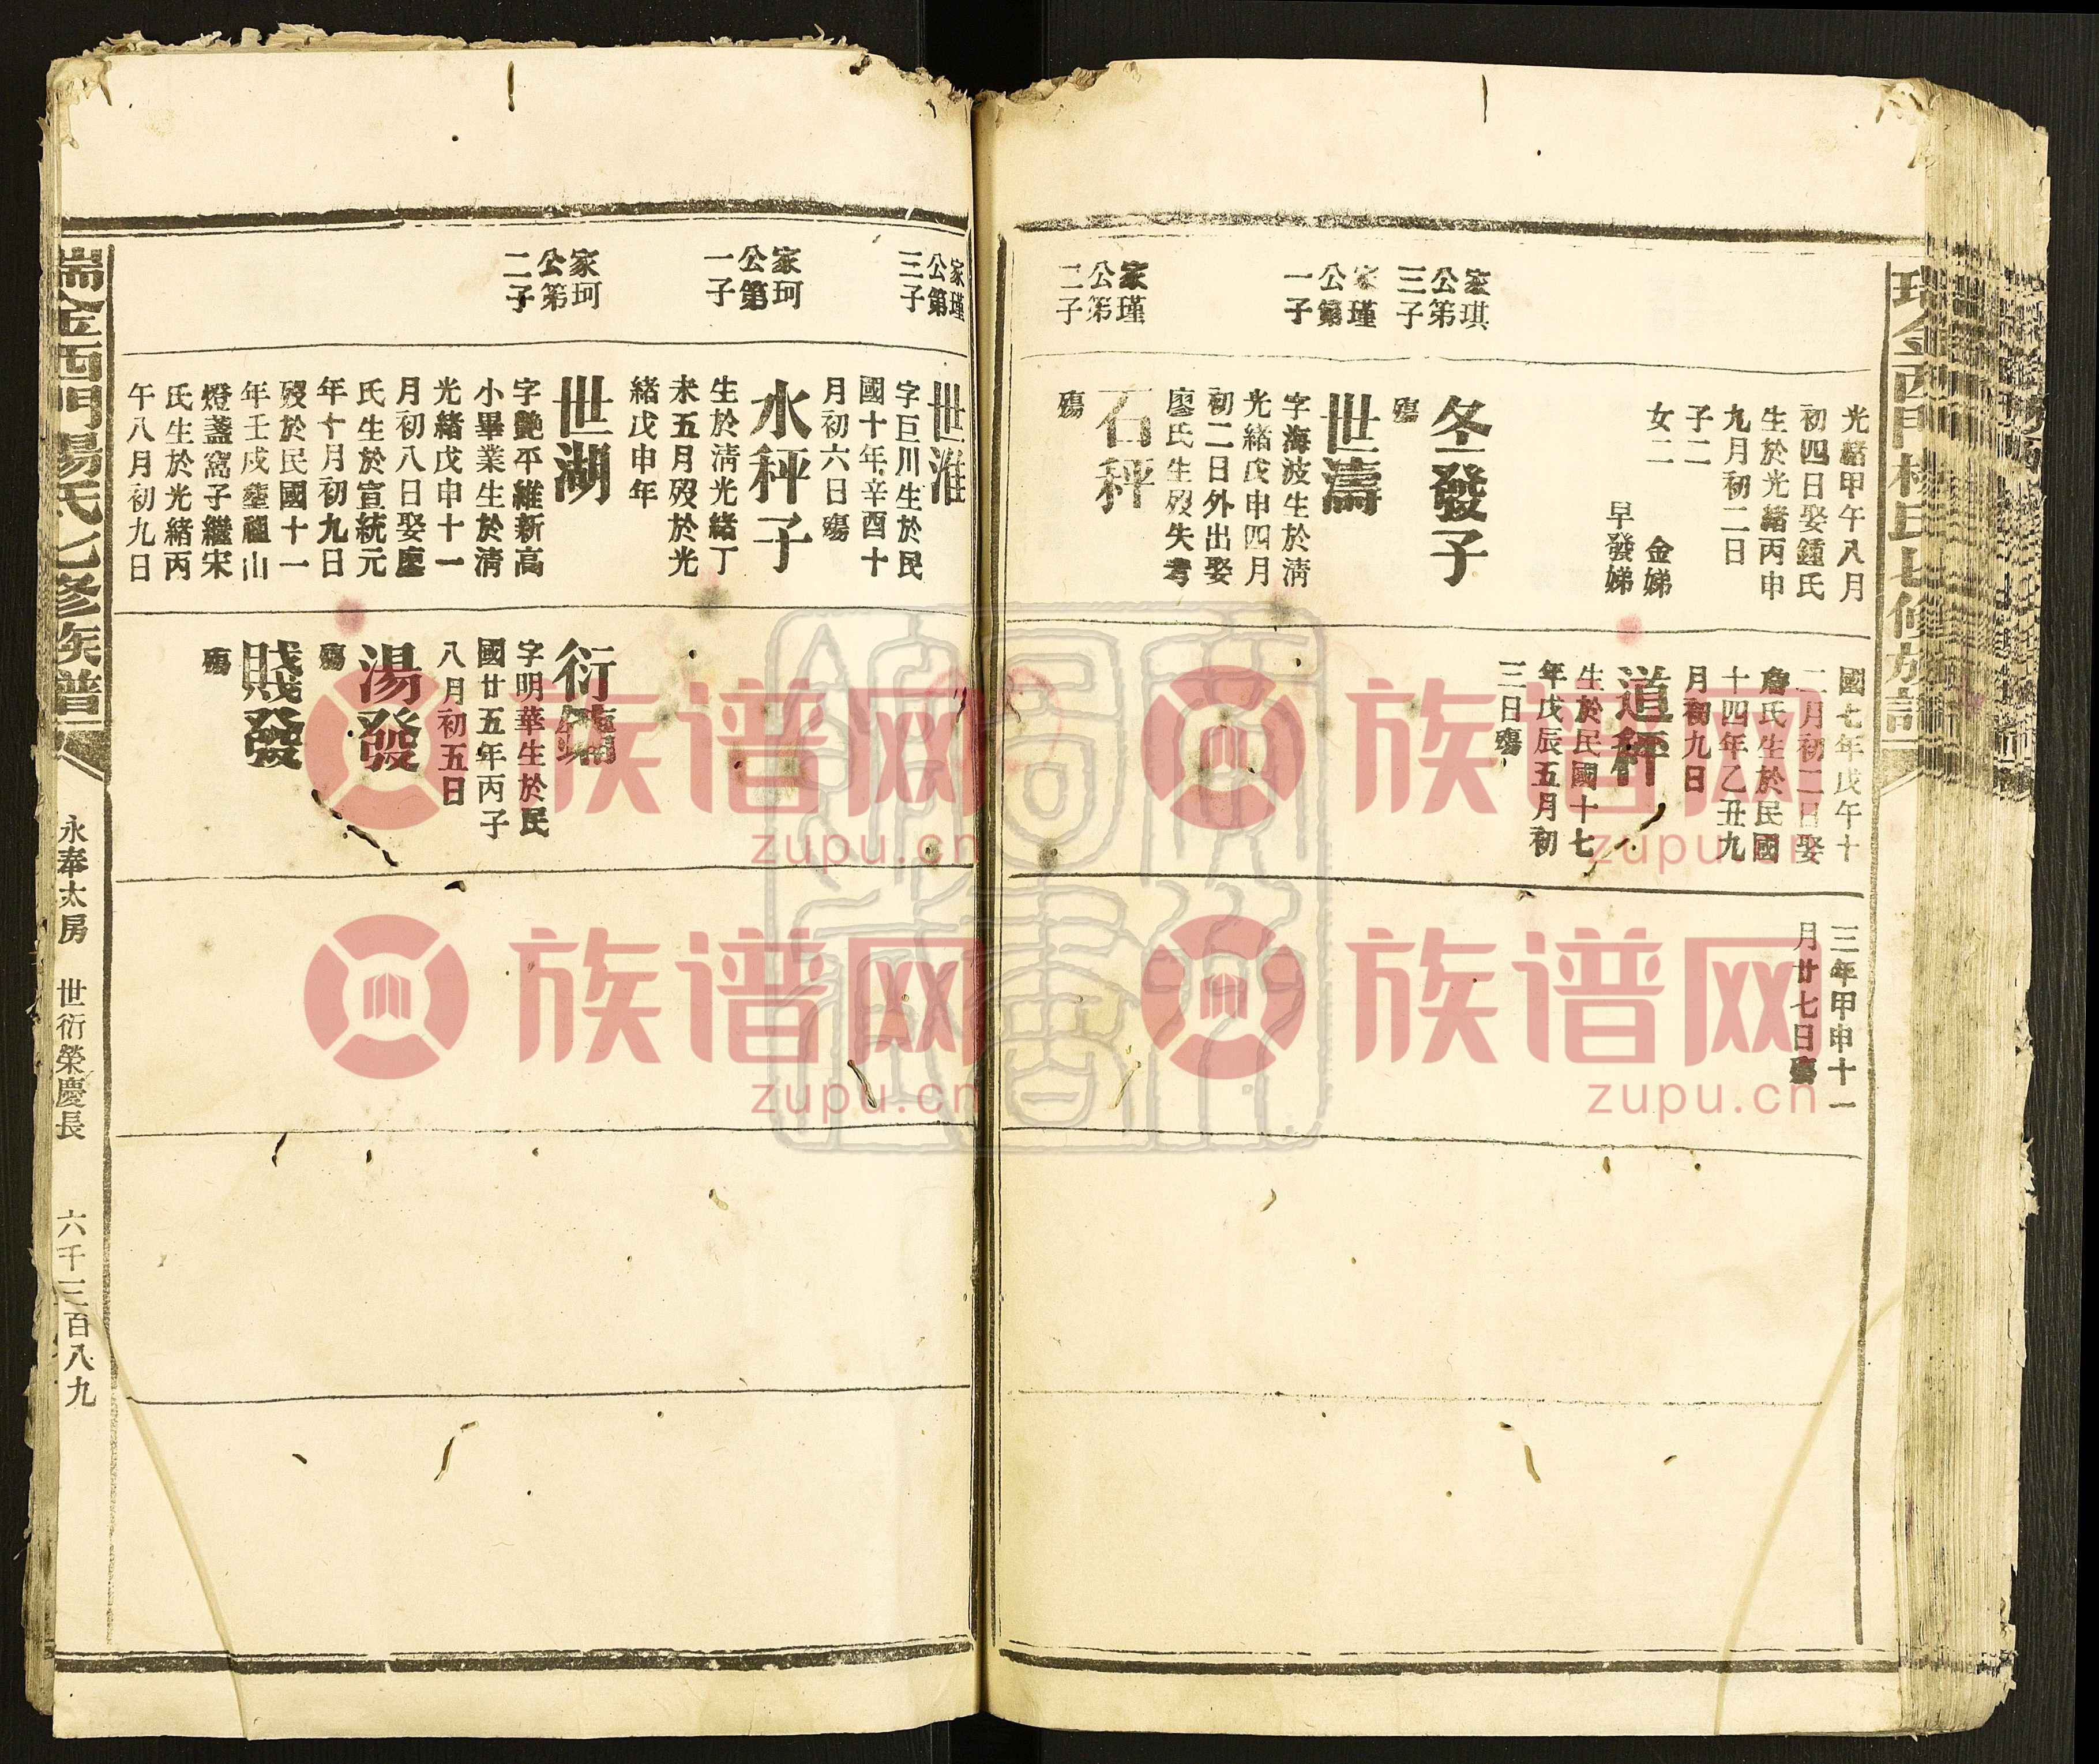 光緒甲午八月
初四日娶鍾氏
生於光緒丙申
九月初二日
子二
女二
金娣
早發娣
家琪
公第
三子
冬發子
殤
家瑾
公第
一子
世濤
字海波生於清
光緒戊申四月
初二日外出娶
廖氏生歿失考
家瑾
公第
二子
石秤
殤
國七年戊午十
二月初二日娶
詹氏生於民國
十四年乙丑九
月初九日
道秤
生於民國十七
年戊辰五月初
三日殤
三年甲申十一
月廿七日殤
家瑾
公第
三子
世淮
字巨川生於民
國十年辛酉十
月初六日殤
家珂
公第
一子
水秤子
生於清光緒丁
未五月歿於光
緒戊申年
家珂
公第
二子
世湖
字艷平維新高
小畢業生於清
光緒戊申十一
月初八日娶廖
氏生於宣統元
年十月初九日
歿於民國十一
年壬戌塟福山
燈盞窩子繼宋
氏生於光緒丙
午八月初九日
衍
字明華生於民
國廿五年丙子
八月初五日
湯發
殤
賤發
殤
瑞金西門楊氏七修族譜
永奉太房 世衍榮慶長 六千三百八九
族谱网
zupu.cn
族谱网
zupu.cn
族谱网
zupu.cn
族谱网
zupu.cn